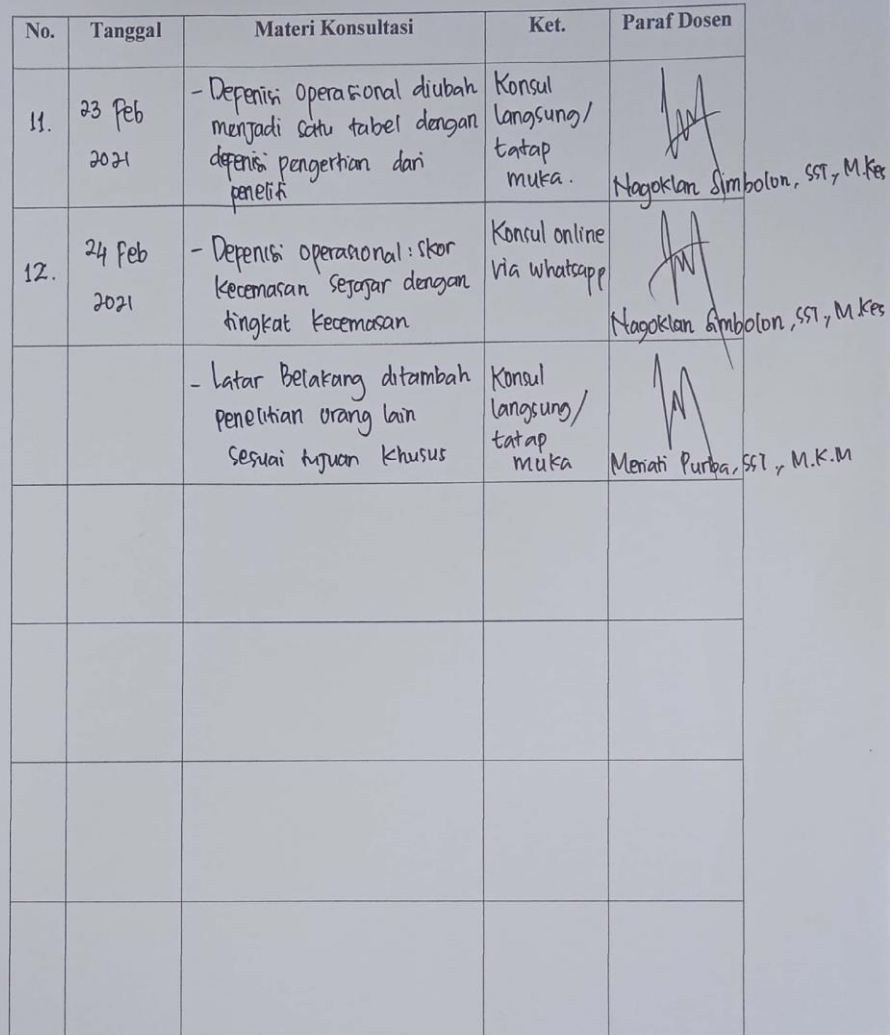 No. Tanggal Materi Konsultasi Ket. Paraf Dosen
11.
23 Feb
2021
- Depenisi Operasional diubah
menjadi satu tabel dengan
depenisi pengertian dari
peneliti
Konsul
langsung/
tatap
muka.
Nagoklan Simbolon, SST, M.Kes
12.
24 Feb
2021
- Depenisi operasional : skor
kecemasan sejajar dengan
tingkat kecemasan
Konsul online
via whatsapp
Nagoklan Simbolon, SST, M.Kes
- Latar Belakang ditambah
penelitian orang lain
sesuai tujuan khusus
Konsul
langsung/
tatap
muka
Meriati Purba, SST, M.K.M